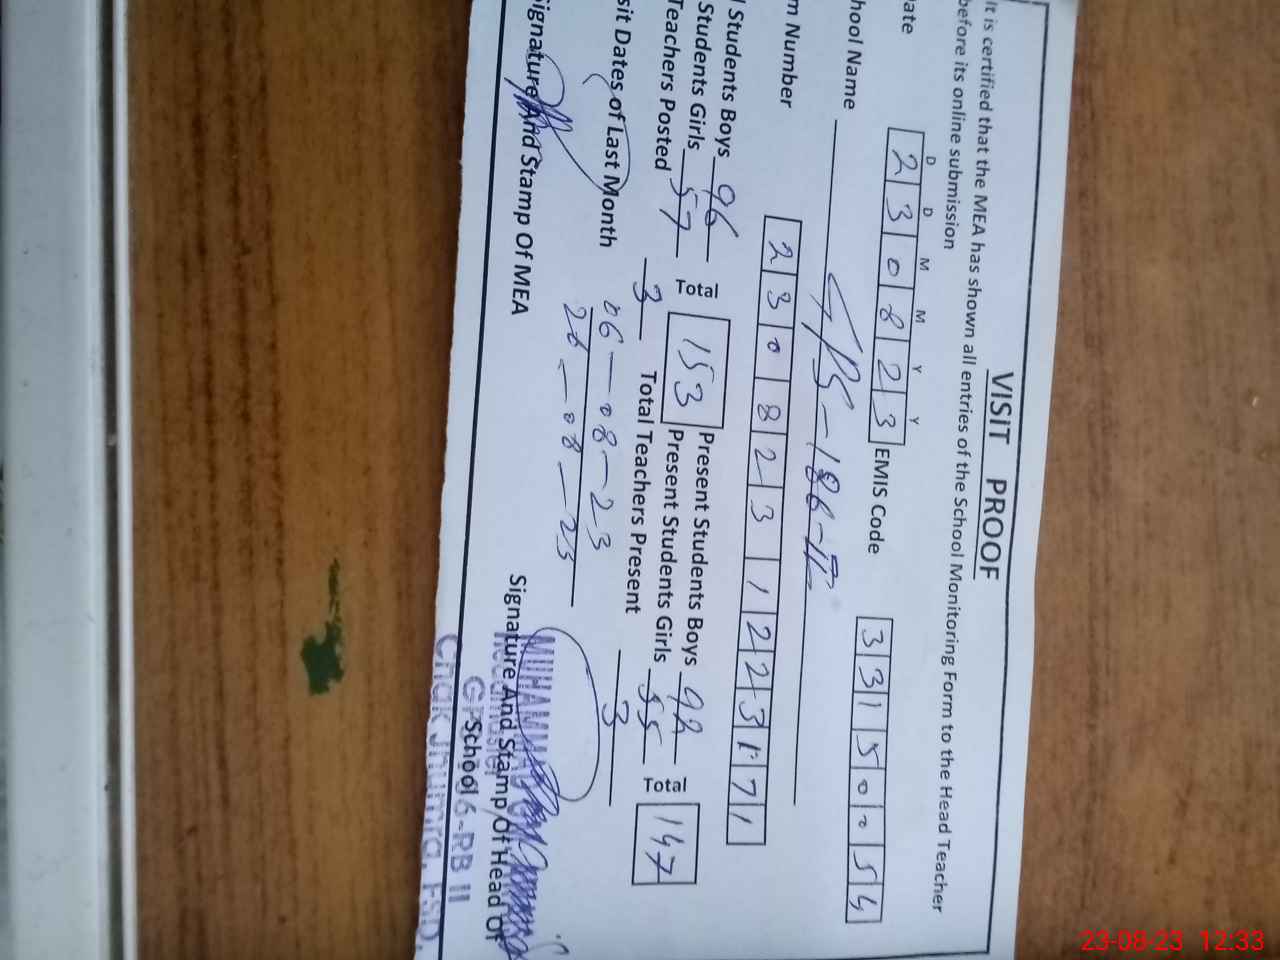 VISIT PROOF
It is certified that the MEA has shown all entries of the School Monitoring Form to the Head Teacher
before its online submission
D D M M Y Y
ate 2 3 0 8 2 3 EMIS Code 3 3 1 5 0 0 5 4
hool Name GPS-186-II
m Number 2 3 0 8 2 3 1 2 2 3 1 7 1
Students Boys 96 Total 153 Present Students Boys 92 Total 147
Students Girls 57 Present Students Girls 55
Teachers Posted 3 Total Teachers Present 3
sit Dates of Last Month 06-08-23
-08-23
Signature And Stamp Of MEA
Signature And Stamp Of Head Of
School
Chak Jhumra, FSD.
23-08-23 12:33